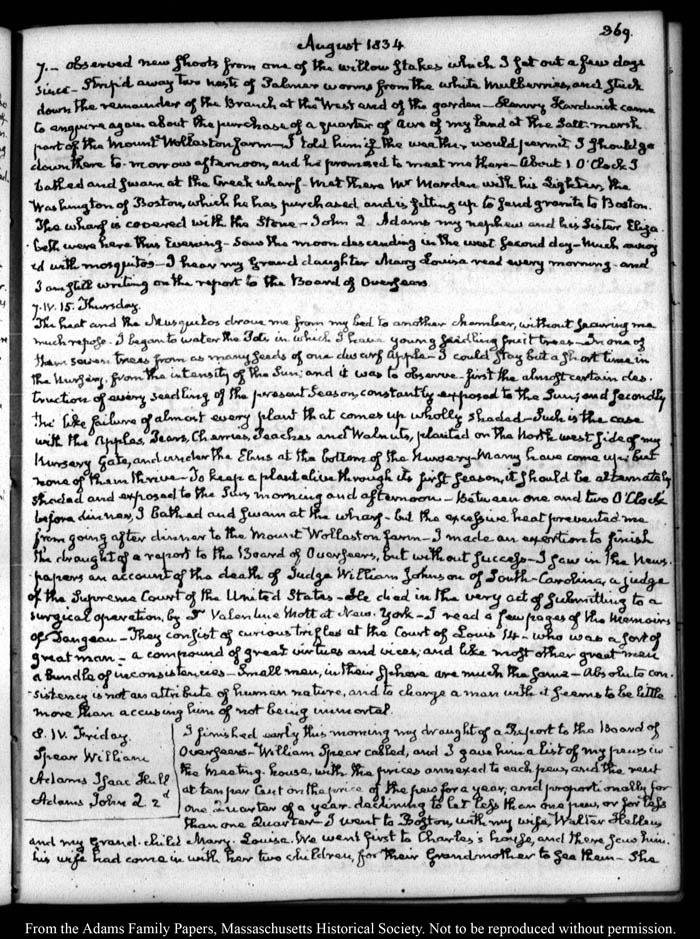 369.
August 1834
7. – observed new shoots from one of the willow stakes which I set out a few days
since – Strip'd away two nests of Palmer worms from the white Mulberries, and stuck
down the remainder of the Branch at the West end of the garden – Hardwick came
to enquire again about the purchase of a quarter of Acre of my land at the Salt-marsh
part of the Mount Wollaston farm – I told him if the weather would permit I should go
down there to-morrow afternoon, and he promised to meet me there – About 1 O'Clock I
bathed and swam at the Creek wharf – Met there Mr Marden with his Lighter, the
Washington of Boston, which he has purchased and is fitting up to send granite to Boston.
The wharf is covered with the Stone – John 2 Adams my nephew and his Sister Eliza-
beth were here this Evening – Saw the moon descending in the west second day – Much annoy
'd with mosquitos – I hear my Grand daughter Mary Louisa read every morning – and
I am still writing on the report to the Board of Overseers
7. IV. 15. Thursday.
The heat and the Musquitos drove me from my bed to another chamber, without leaving me
much repose. I began to water the Pots in which I have young seedling fruit trees – In one of
them seven trees from as many seeds of one dwarf apple – I could stay but a short time in
the Nursery, from the intensity of the Sun; and it was to observe first the almost certain des-
truction of every seedling of the present Season, constantly exposed to the Sun; and secondly
the like failure of almost every plant that comes up wholly shaded – Such is the case
with the Apples, Pears, Cherries, Peaches and Walnuts, planted on the North west side of my
Nursery Gate, and under the Elms at the bottom of the Nursery – Many have come up; but
none of them thrive – To keep a plant alive through its first Season, it should be alternately
shaded and exposed to the Sun, morning and afternoon – Between one and two O'Clock
before dinner, I bathed and swam at the wharf – but the excessive heat prevented me
from going after dinner to the Mount Wollaston farm – I made an exertion to finish
the draught of a report to the Board of Overseers, but without success – I saw in the News-
papers an account of the death of Judge William Johnson of South-Carolina, a judge
of the Supreme Court of the United States – He died in the very act of submitting to a
surgical operation, by Dr Valentine Mott at New-York – I read a few pages of the Memoirs
of Dangeau – They consist of curious trifles at the Court of Louis 14 – who was a sort of
great man – a compound of great virtues and vices, and like most other great men
a bundle of inconsistencies – Small men, in their Sphere are much the same – Absolute con-
sistency is not an attribute of human nature, and to charge a man with it seems to be little
more than accusing him of not being immortal
8. IV. Friday.
Spear William
Adams Isaac Hull
Adams John 2. 2d
I finished early this morning my draught of a Report to the Board of
Overseers – William Spear called, and I gave him a list of my pews in
the Meeting-house, with the prices annexed to each pew, and the rent
at ten per Cent on the price of the pew for a year, and proportionally for
one Quarter of a year. declining to let less than one pew, or for less
than one Quarter – I went to Boston, with my wife, Walter Hellen,
and my Grand-child Mary-Louisa. We went first to Charles's house, and there saw him.
his wife had come in with her two children, for their Grandmother to see them – She
From the Adams Family Papers, Massachusetts Historical Society. Not to be reproduced without permission.